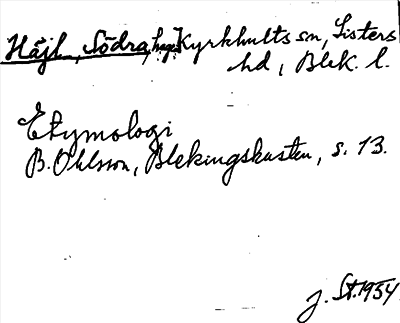 Häjl, Södra, hage, Kyrkhults sn, Listers
hd, Blek. l.
Etymologi
B. Ohlsson, Blekingskusten, s. 13.
J. St. 1954